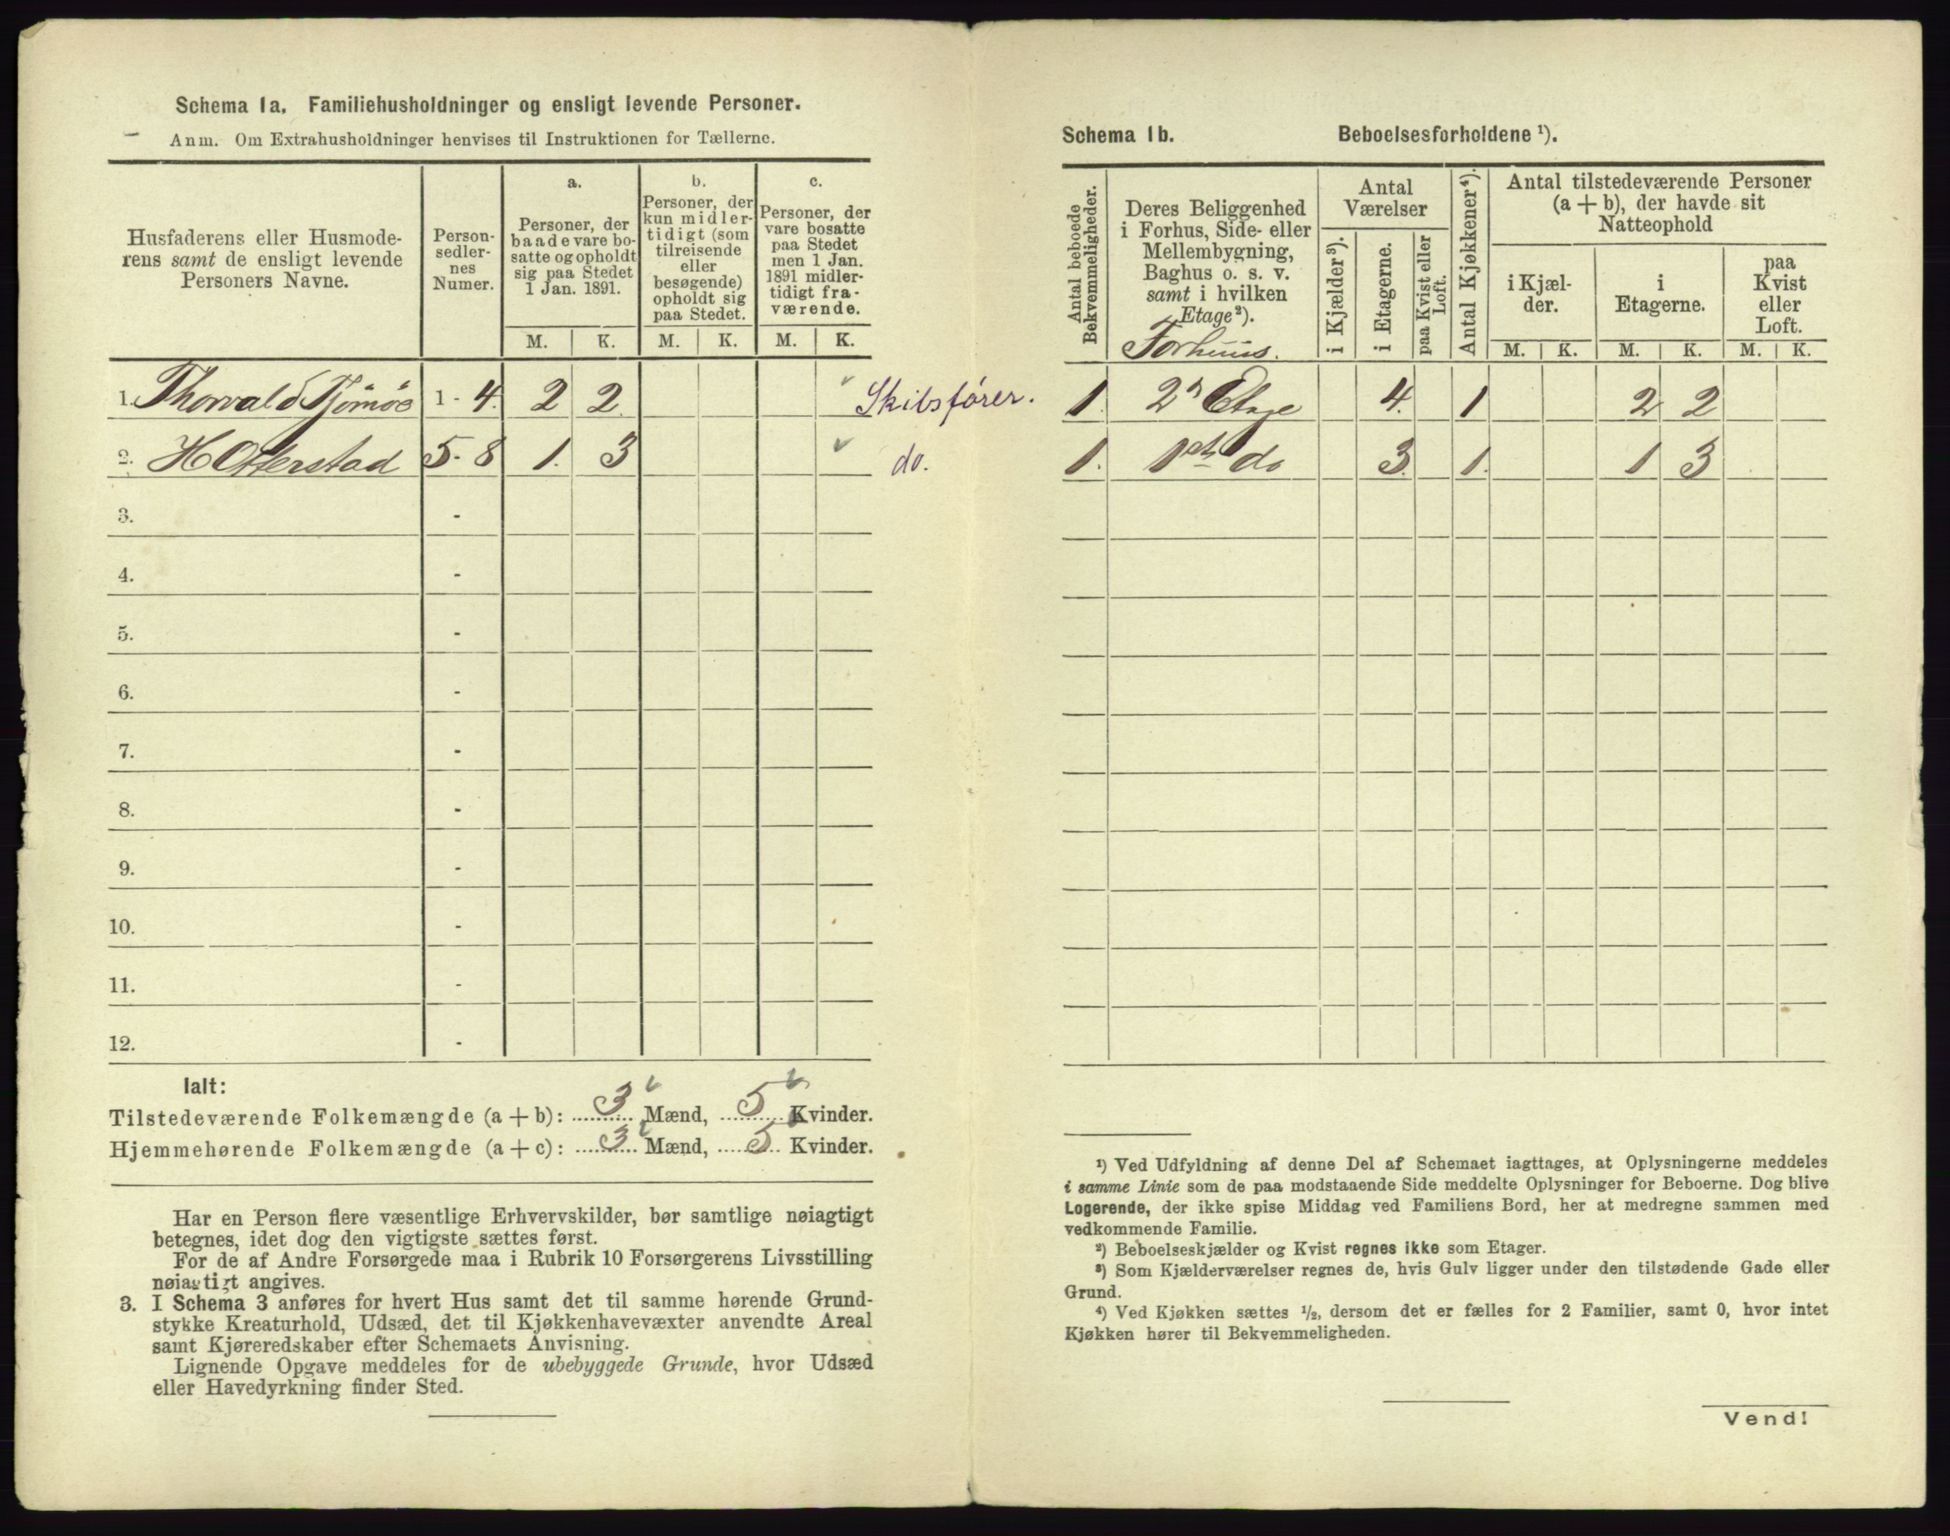 Schema 1a. Familiehusholdninger og ensligt levende Personer.
Anm. Om Extrahusholdninger henvises til Instruktionen for Tællerne.
Husfaderens eller Husmode-
rens samt de ensligt levende
Personers Navne.
Person-
sedler-
nes
Numer.
a.
Personer, der
baade vare bo-
satte og opholdt
sig paa Stedet
1 Jan. 1891.
M. K.
b.
Personer, der
kun midler-
tidigt (som
tilreisende
eller
besøgende)
opholdt sig
paa Stedet.
M. K.
c.
Personer, der
vare bosatte
paa Stedet
men 1 Jan.
1891 midler-
tidigt fra-
værende.
M. K.
1. Thorvald Tjömöe 1 - 4. 2 2 Skibsfører.
2. H Otterstad 5 - 8 1. 3 do.
3. -
4. -
5. -
6. -
7. -
8. -
9. -
10. -
11. -
12. -
Ialt:
Tilstedeværende Folkemængde (a + b): 3 Mænd, 5 Kvinder.
Hjemmehørende Folkemængde (a + c): 3 Mænd, 5 Kvinder.
Har en Person flere væsentlige Erhvervskilder, bør samtlige nøiagtigt
betegnes, idet dog den vigtigste sættes først.
For de af Andre Forsørgede maa i Rubrik 10 Forsørgerens Livsstilling
nøiagtigt angives.
3. I Schema 3 anføres for hvert Hus samt det til samme hørende Grund-
stykke Kreaturhold, Udsæd, det til Kjøkkenhavevæxter anvendte Areal
samt Kjøreredskaber efter Schemaets Anvisning.
Lignende Opgave meddeles for de ubebyggede Grunde, hvor Udsæd
eller Havedyrkning finder Sted.
Schema 1b. Beboelsesforholdene ¹).
Antal beboede
Bekvemmeligheder.
Deres Beliggenhed
i Forhus, Side- eller
Mellembygning,
Baghus o. s. v.
samt i hvilken
Etage²).
Forhuus.
Antal
Værelser
i Kjælder³).
i Etagerne.
paa Kvist eller
Loft.
Antal Kjøkkener⁴).
Antal tilstedeværende Personer
(a + b), der havde sit
Natteophold
i Kjæl-
der.
i
Etagerne.
paa
Kvist
eller
Loft.
M. K. M. K. M. K.
1. 2n Etage 4. 1 2 2
1. 1st do 3. 1. 1 3
¹) Ved Udfyldning af denne Del af Schemaet iagttages, at Oplysningerne meddeles
i samme Linie som de paa modstaaende Side meddelte Oplysninger for Beboerne. Dog blive
Logerende, der ikke spise Middag ved Familiens Bord, her at medregne sammen med
vedkommende Familie.
²) Beboelseskjælder og Kvist regnes ikke som Etager.
³) Som Kjælderværelser regnes de, hvis Gulv ligger under den tilstødende Gade eller
Grund.
⁴) Ved Kjøkken sættes ½, dersom det er fælles for 2 Familier, samt 0, hvor intet
Kjøkken hører til Bekvemmeligheden.
Vend!